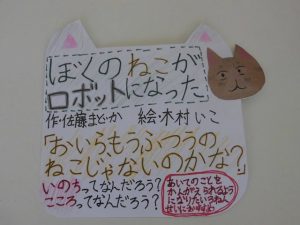 ぼくのねこが
ロボットになった
作・佐藤まどか 絵・木村いこ
「おいらもうふつうの
ねこじゃないのかな?」
いのちってなんだろう?
こころってなんだろう?
あいてのことを
かんがえられるよう
になりたい